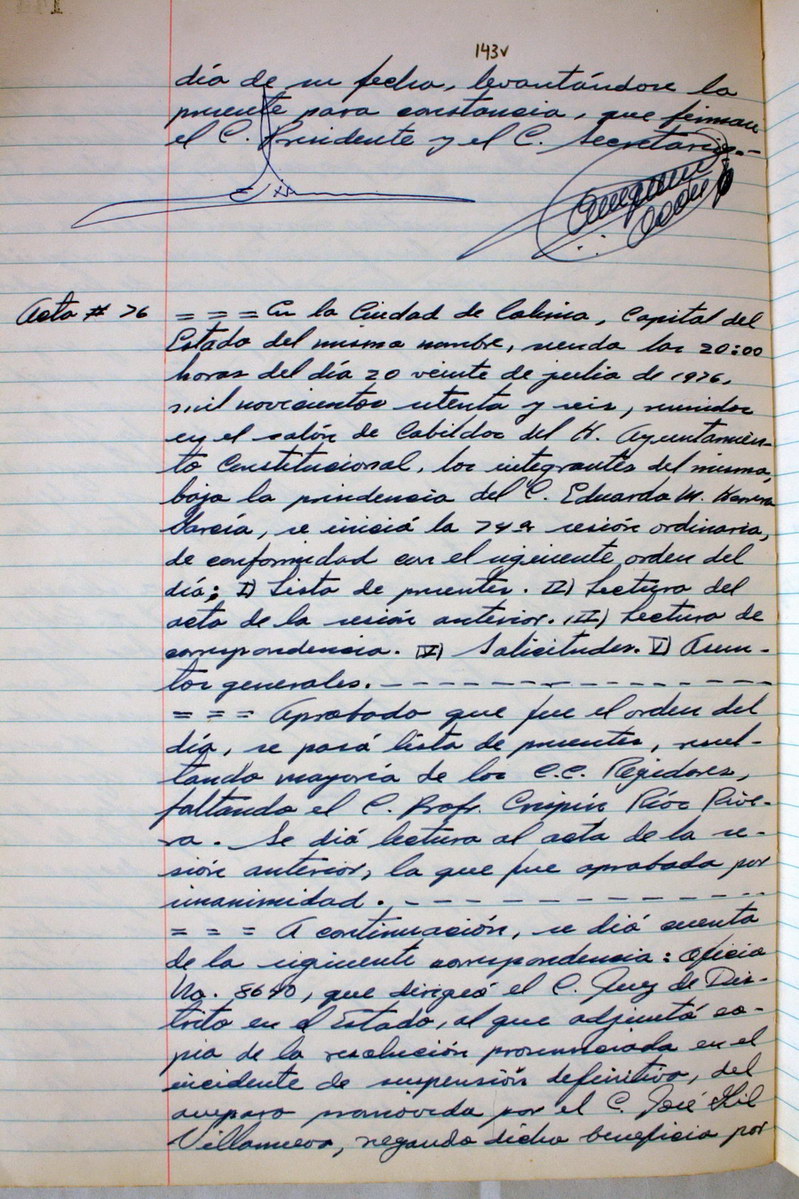 143v
día de su fecha, levantándose la
presente para constancia, que firman
el C. Presidente y el C. Secretario.-
Acta # 76
= = = En la Ciudad de Colima, Capital del
Estado del mismo nombre, siendo las 20:00
horas del día 20 veinte de julio de 1976,
mil novecientos setenta y seis, reunidos
en el salón de Cabildos del H. Ayuntamien-
to Constitucional, los integrantes del mismo,
bajo la presidencia del C. Eduardo M. Herrera
García, se inició la 74a sesión ordinaria,
de conformidad con el siguiente orden del
día; I) Lista de presentes. II) Lectura del
acta de la sesión anterior. III) Lectura de
correspondencia. IV) Solicitudes. V) Asun-
tos generales. - - - - - - - - - - - - - -
= = = Aprobado que fue el orden del
día, se pasó lista de presentes, resul-
tando mayoría de los C.C. Regidores,
faltando el C. Profr. Crispín Ríos Rive-
ra. Se dió lectura al acta de la se-
sión anterior, la que fue aprobada por
unanimidad. - - - - - - - - - - - -
= = = A continuación, se dió cuenta
de la siguiente correspondencia: oficio
No. 8690, que dirigió el C. Juez de Dis-
trito en el Estado, al que adjuntó co-
pia de la resolución pronunciada en el
incidente de suspensión definitiva, del
amparo promovido por el C. José Gil
Villanueva, negando dicho beneficio por